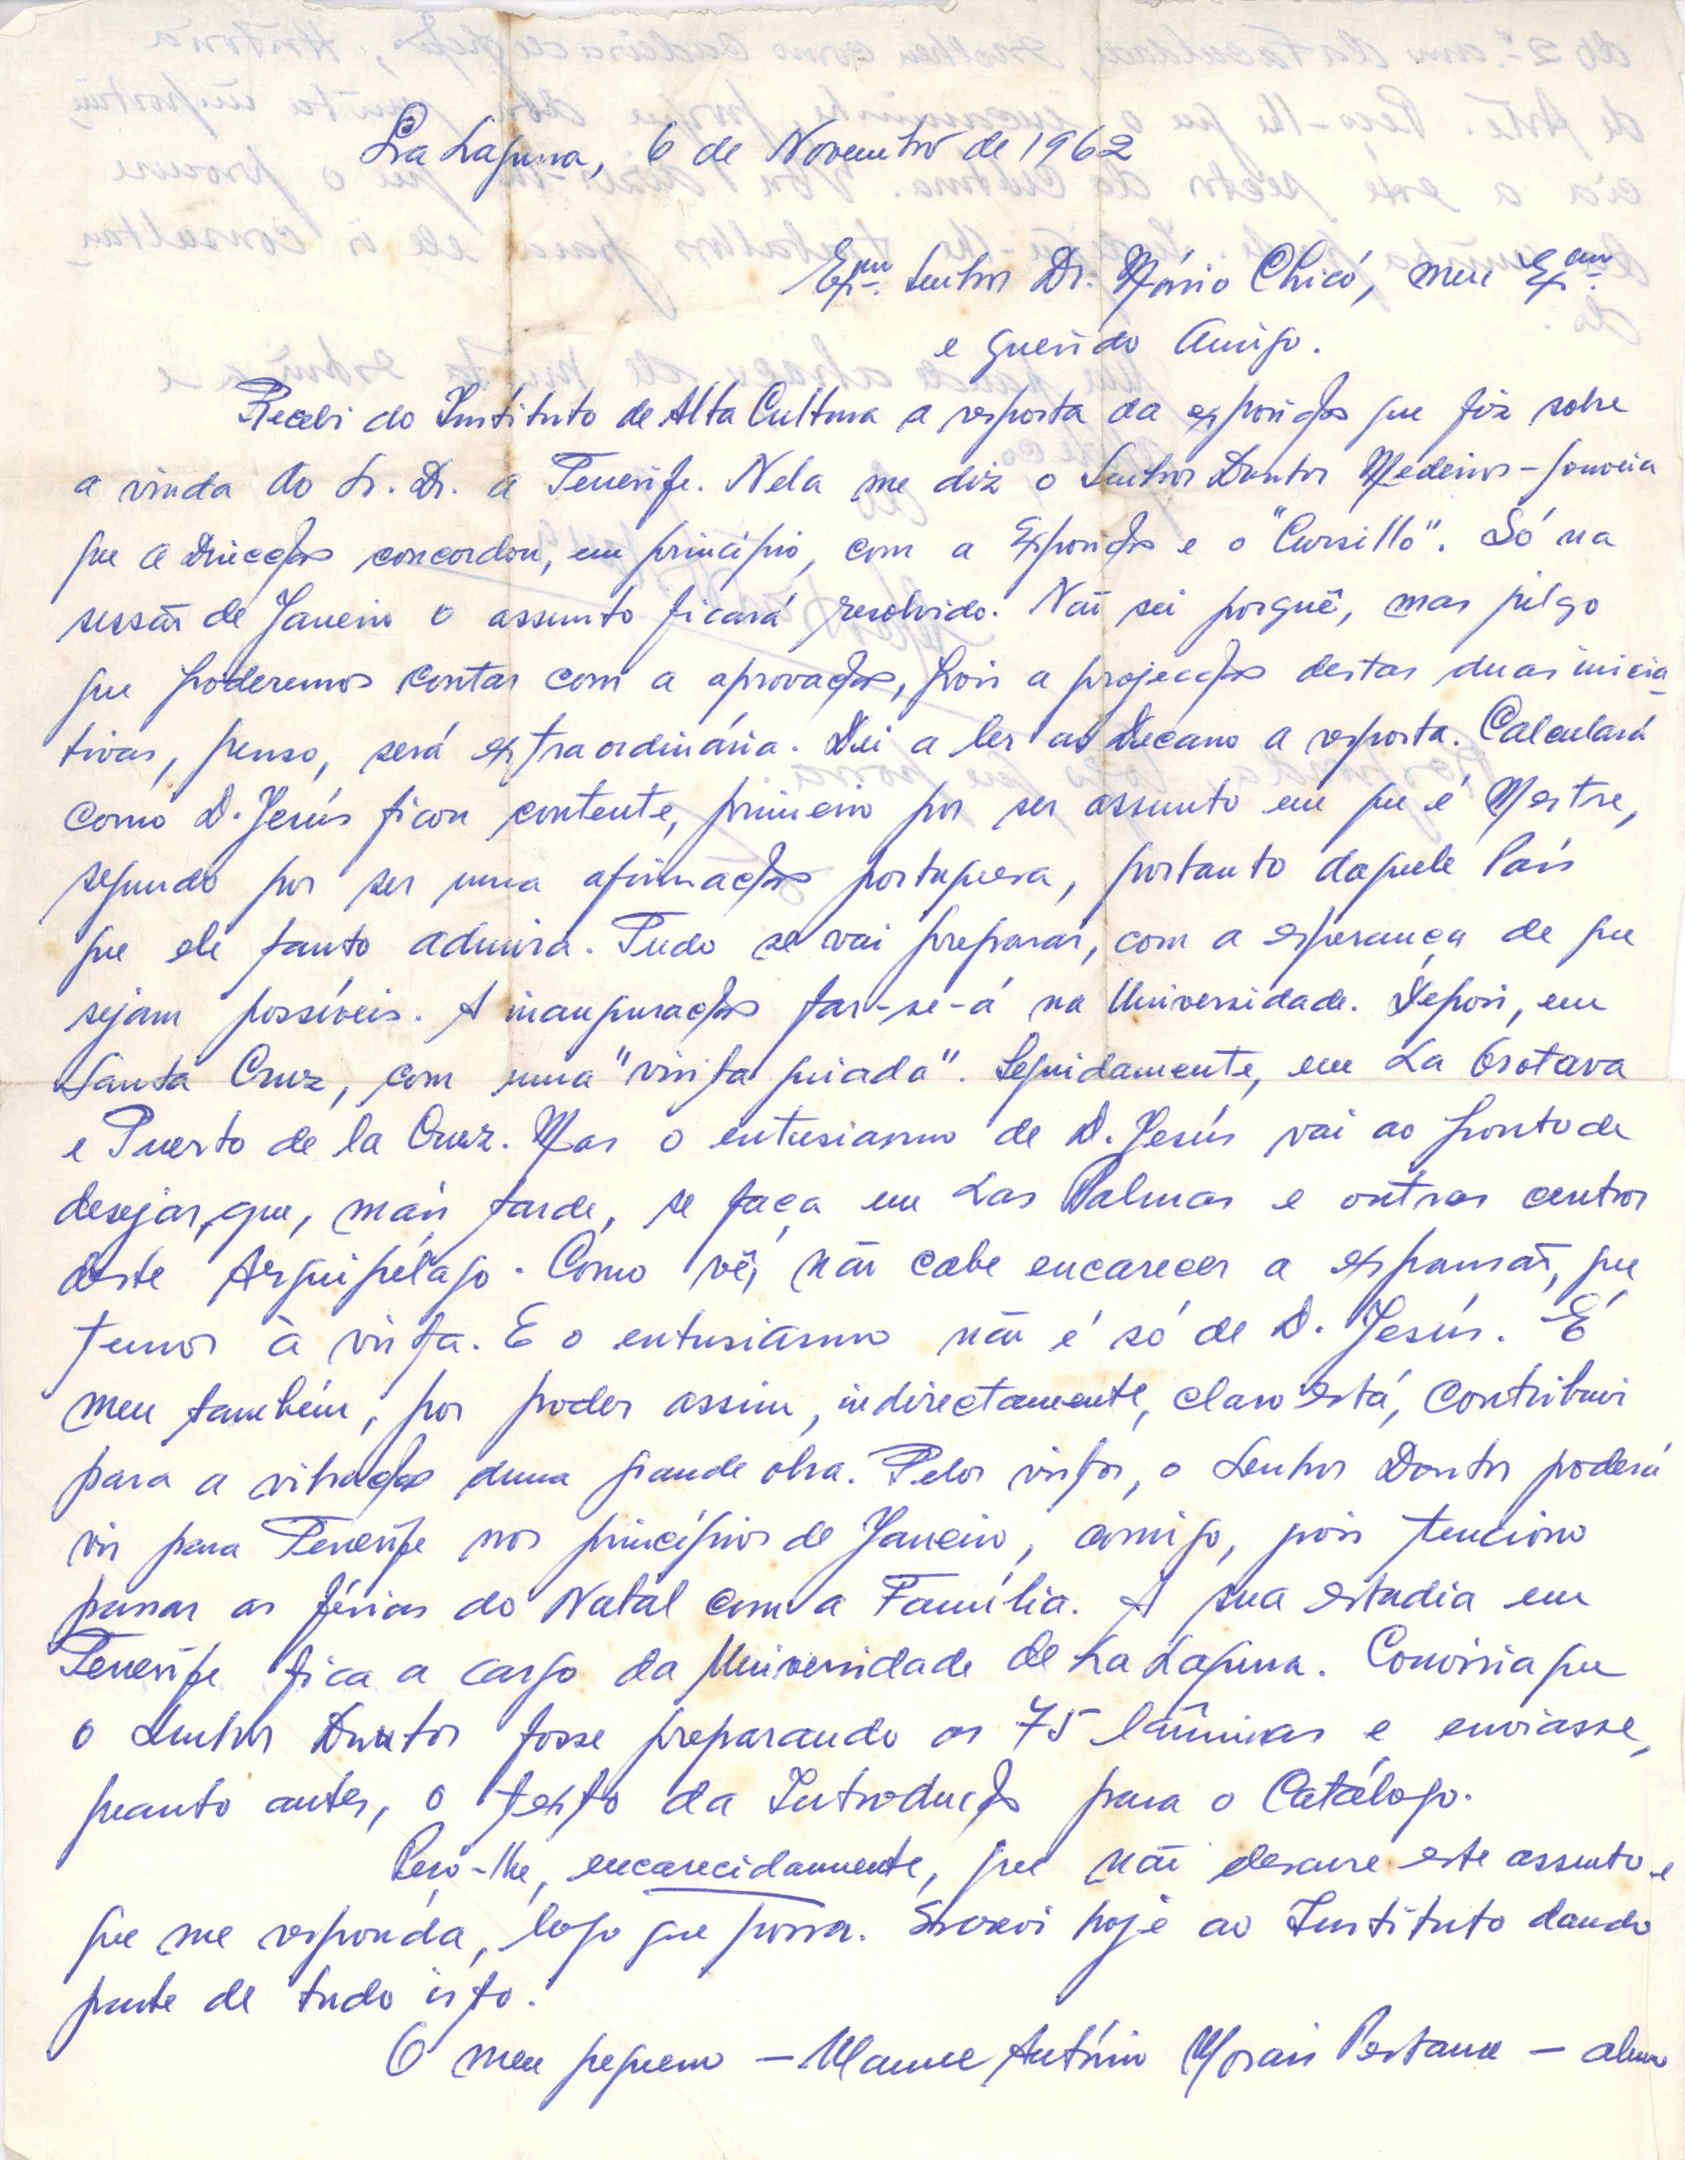 La Laguna, 6 de Novembro de 1962
Exmo. Senhor Dr. Mário Chicó, meu Exmo.
e querido Amigo.
Recebi do Instituto de Alta Cultura a resposta da exposição que fiz sobre
a vinda do Sr. Dr. a Tenerife. Nela me diz o Senhor Doutor Medeiros-Gouveia
que a Direcção concordou, em princípio, com a Exposição e o "Cursillo". Só na
sessão de Janeiro o assunto ficará resolvido. Não sei porquê, mas julgo
que poderemos contar com a aprovação, pois a projecção destas duas inicia-
tivas, penso, será extraordinária. Dei a ler ao Decano a resposta. Calculará
como D. Jesús ficou contente, primeiro por ser assunto em que é Mestre,
segundo por ser uma afirmação portuguesa, portanto daquele País
que ele tanto admira. Tudo se vai preparar, com a esperança de que
sejam possíveis. A inauguração far-se-á na Universidade. Depois, em
Santa Cruz, com uma "visita guiada". Seguidamente, em La Orotava
e Puerto de la Cruz. Mas o entusiasmo de D. Jesús vai ao ponto de
desejar, que, mais tarde, se faça em Las Palmas e outros centros
deste Arquipélago. Como vê, não cabe encarecer a expansão, que
temos à vista. E o entusiasmo não é só de D. Jesús. É
meu também, por poder assim, indirectamente, claro está, contribuir
para a vibração duma grande obra. Pelos vistos, o Senhor Doutor poderá
vir para Tenerife nos princípios de Janeiro, comigo, pois tenciono
passar as férias do Natal com a Família. A sua estadia em
Tenerife fica a cargo da Universidade de La Laguna. Conviria que
o Senhor Doutor fosse preparando as 75 lâminas e enviasse,
quanto antes, o texto da Introdução para o Catálogo.
Peço-lhe, encarecidamente, que não descure este assunto e
que me responda, logo que possa. Escrevi hoje ao Instituto dando
parte de tudo isto.
O meu pequeno — Manuel António Morais Pestana — aluno